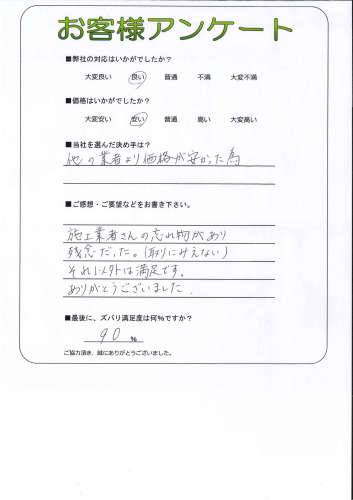 お客様アンケート
■弊社の対応はいかがでしたか?
大変良い 良い 普通 不満 大変不満
■価格はいかがでしたか?
大変安い 安い 普通 高い 大変高い
■当社を選んだ決め手は?
他の業者より価格が安かった為
■ご感想・ご要望などをお書き下さい。
施工業者さんの忘れ物があり
残念だった。(取りにみえない)
それ以外は満足です。
ありがとうございました.
■最後に、ズバリ満足度は何%ですか?
90 %
ご協力頂き、誠にありがとうございました。